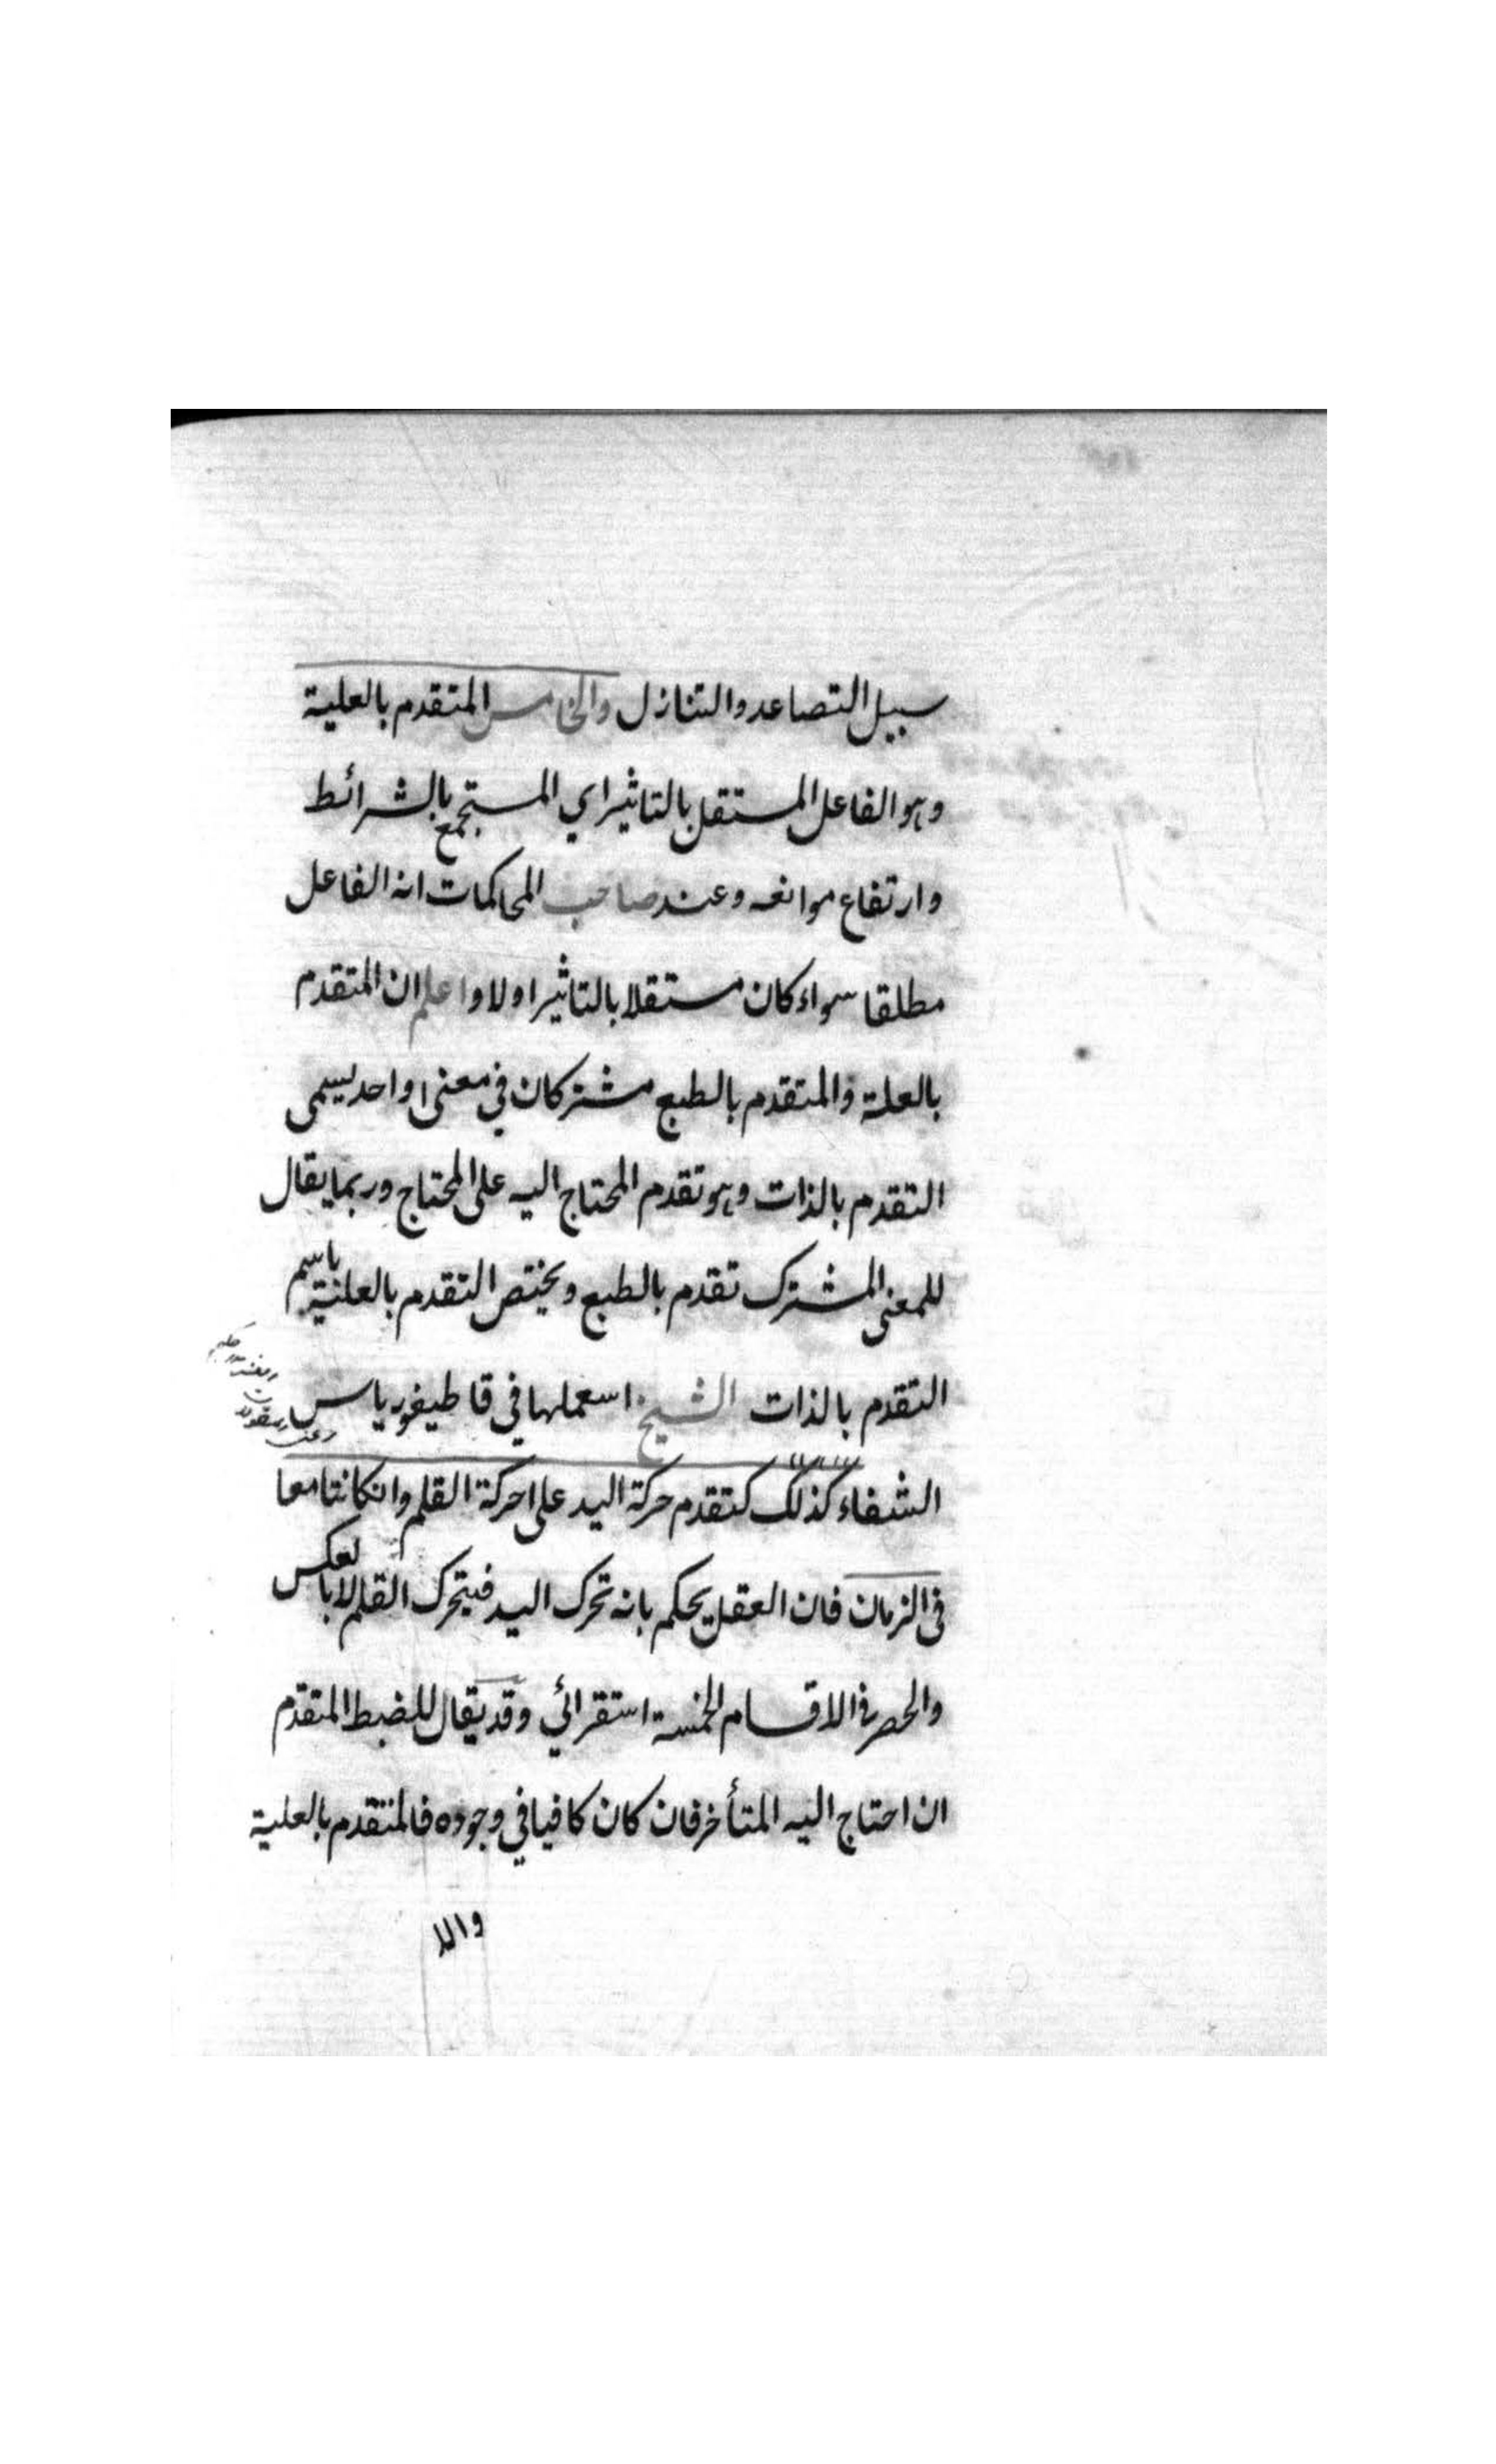 سبيل التصاعد والتنازل والخامس المتقدم بالعلية
وهو الفاعل المستقل بالتاثير اي المستجمع بالشرائط
وارتفاع موانعه وعند صاحب المحاكمات انه الفاعل
مطلقا سواء كان مستقلا بالتاثير او لا واعلم ان المتقدم
بالعلة والمتقدم بالطبع مشتركان في معنى واحد يسمى
التقدم بالذات وهو تقدم المحتاج اليه على المحتاج وربما يقال
للمعنى المشترك تقدم بالطبع ويختص التقدم بالعلية باسم
التقدم بالذات الشيخ اسعملها في قاطيغورياس
الشفاء كذلك كتقدم حركة اليد على حركة القلم وان كانتا معا
في الزمان فان العقل يحكم بانه تحرك اليد فيتحرك القلم لا بالعكس
والحصر في الاقسام الخمسة استقرائي وقد يقال للضبط المتقدم
ان احتاج اليه المتأخر فان كان كافيا في وجوده فالمتقدم بالعلية
والا